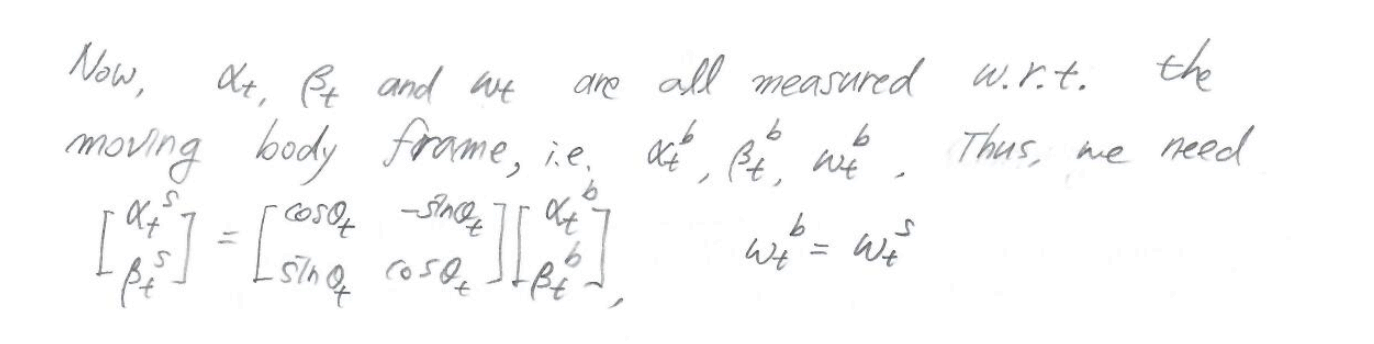 Now, αt, βt and wt are all measured w.r.t. the
moving body frame, i.e. αt^b, βt^b, wt^b. Thus, we need
[αt^s; βt^s] = [cosθt -sinθt; sinθt cosθt][αt^b; βt^b], wt^b = wt^s